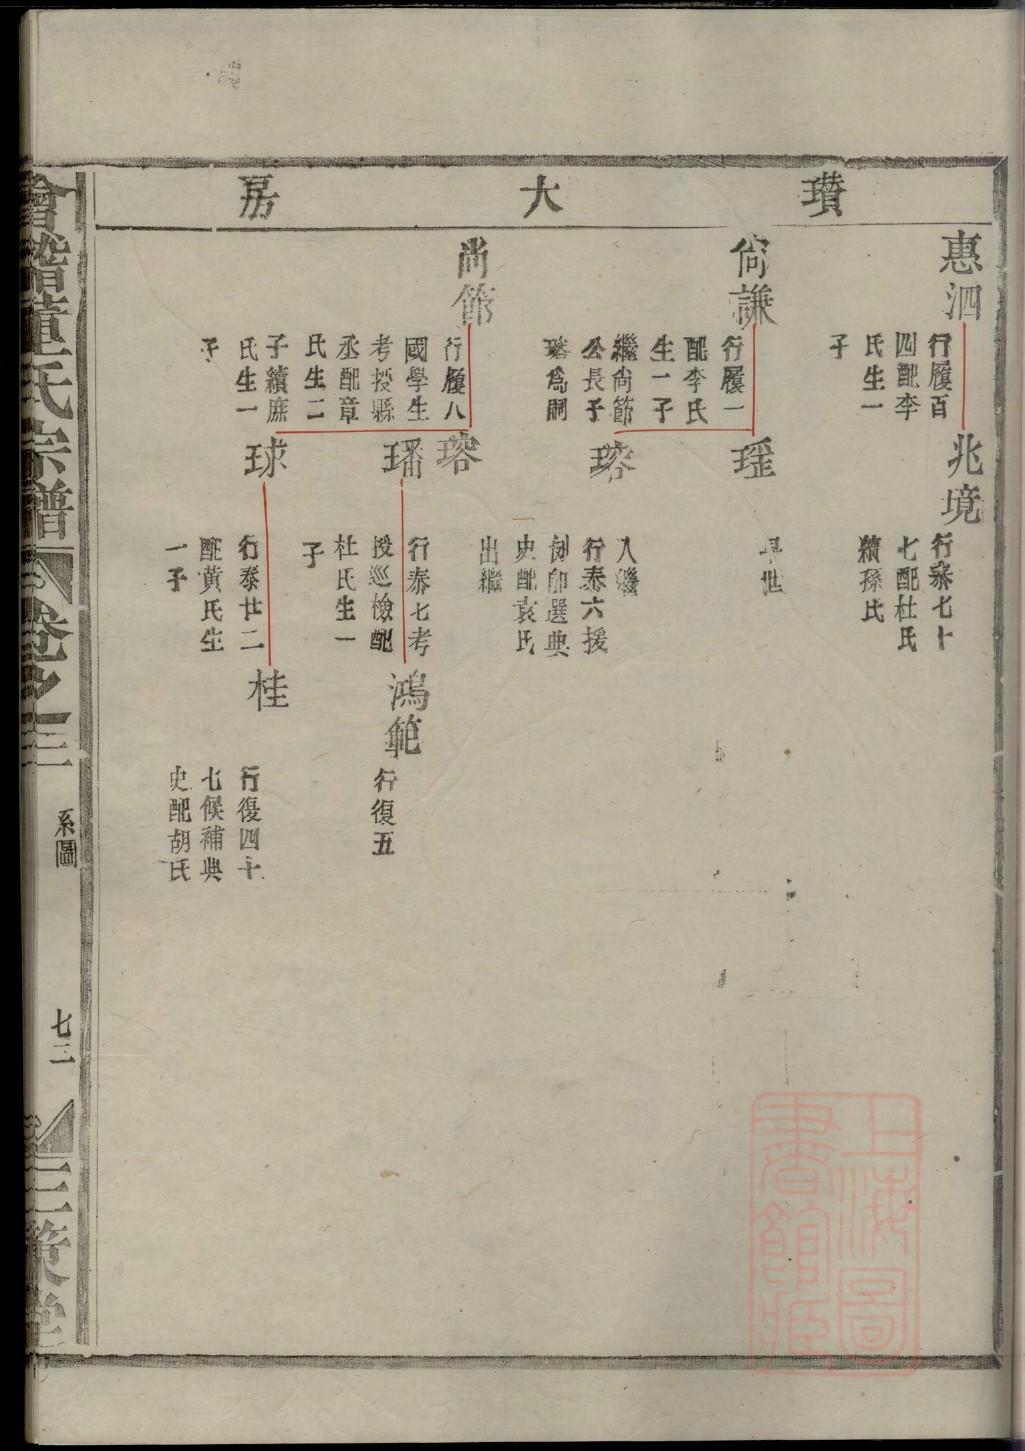 瓚大房
惠泗
行履百
四配李
氏生一
子
兆境
行泰七十
七配杜氏
續孫氏
尙謙
行履一
配李氏
生一子
繼尙節
公長子
瑢爲嗣
瑶
早世
瑢
入繼
行泰六援
例卽選典
史配袁氏
尚節
行履八
國學生
考授縣
丞配章
氏生二
子續龐
氏生一
子
瑢
出繼
璠
行泰七考
授巡檢配
杜氏生一
子
鴻範
行復五
球
行泰廿二
配黃氏生
一子
桂
行復四十
七候補典
史配胡氏
會稽董氏宗譜
卷之三
系圖
七二
三策堂
上海圖
書館藏